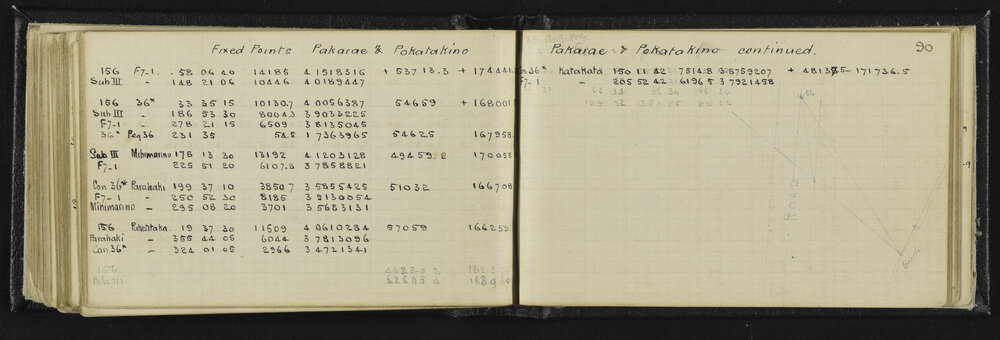 Fixed Points Pakarae & Pokatakino
156 F7-1 58 06 40 14185 4 1518316 + 53713.3 + 174441
Sub III - 148 21 06 10446 4 0189447
156 36* 33 35 15 10130.7 4 0056387 54659 + 168001
Sub III - 186 53 30 8004.3 3 9033225
F7-1 - 278 21 15 6509 3 8135045
36* Peg 36 231 35 54.5 1 7363965 54625 167958
Sub III Mihimarino 175 13 30 13192 4 1203128 49459.2 170058
F7-1 225 51 20 6107.5 3 7858821
Con 36* Parahaki 199 37 10 3850.7 3 5855425 51032 166708
F7-1 - 250 52 30 8185 3 9130054
Mihimarino - 295 08 20 3701 3 5683131
156 19 37 30 11509 4 0610284 57059 166259
Parahaki - 355 44 05 6044 3 7813096
Con 36* - 324 01 05 2966 3 4721341
156 46220 2
III
Pakarae & Pokatakino continued.
90
Con 36* Katakata 150 11 42 75148 3 8759207 + 48137.5 - 171736.5
F7-1 - 205 52 42 61965 3 7921458
ROAD